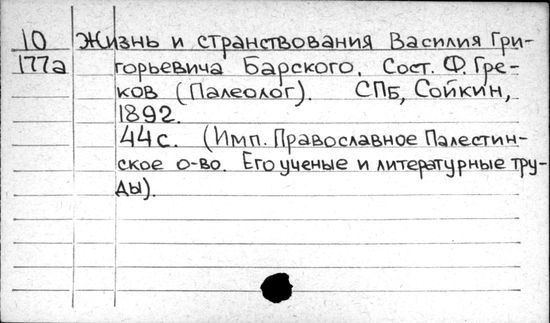 10 Жизнь и странствования Василия Гри-
177а горьевича Барского. Сост. Ф. Гре-
ков (Палеолог). СПБ, Сойкин,
1892.
44 с. (Имп. Православное Палестин-
ское о-во. Его ученые и литературные тру-
ды).